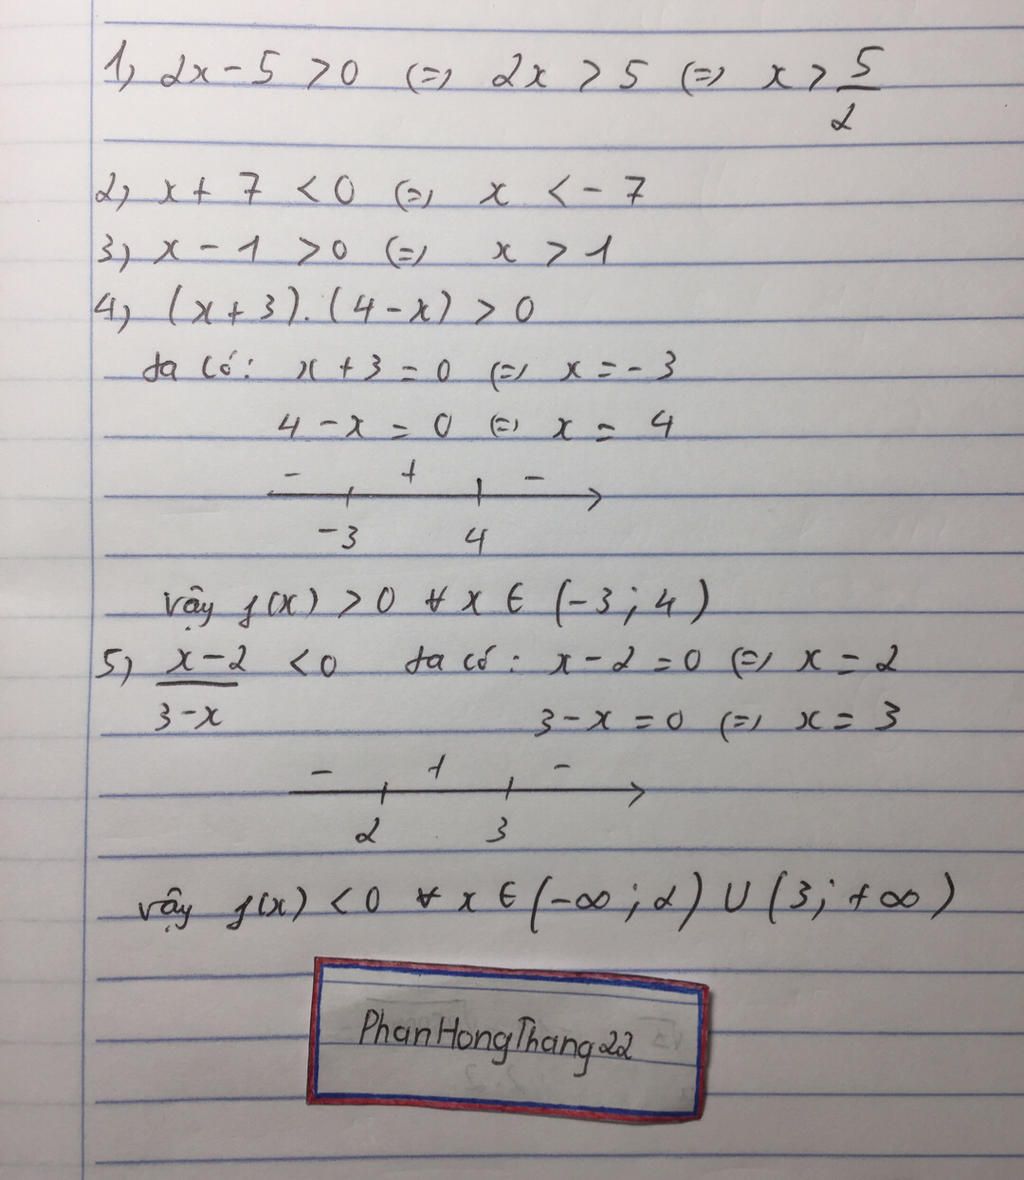 1) 2x - 5 > 0 (=) 2x > 5 (=) x > 5/2
2) x + 7 < 0 (=) x < - 7
3) x - 1 > 0 (=) x > 1
4) (x + 3).(4 - x) > 0
ta có: x + 3 = 0 (=) x = - 3
4 - x = 0 (=) x = 4
- + -
-3 4
vậy f(x) > 0 ∀ x ∈ (-3; 4)
5) x-2/3-x < 0 ta có: x - 2 = 0 (=) x = 2
3 - x = 0 (=) x = 3
- + -
2 3
vậy f(x) < 0 ∀ x ∈ (-∞; 2) ∪ (3; +∞)
PhanHongThang22